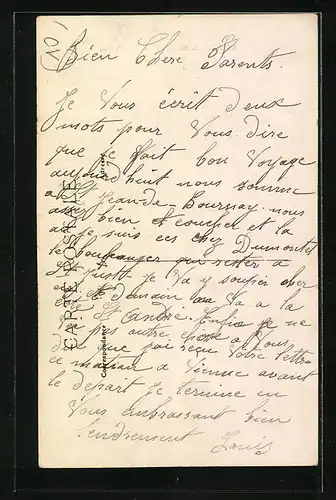 Bien Chers Parents.
Je Vous écrit deux
mots pour Vous dire
que je fait bon Voyage
aujourd huit nous somme
a St Jean-de-Bournay. nous
bien coucher et la
je suis ces chez Dumontet
le boulanger qui rester a
St Just. Je Va y souper chez
Demain on Va a la
St andré. Enfin je ne
pas autre chose a Vous
dire que jai reçu Votre lettre
ce matin a Vienne avant
le depart Je termine en
Vous embrassant bien
tendrement Louis
CARTE POSTALE
Correspondance
Adresse